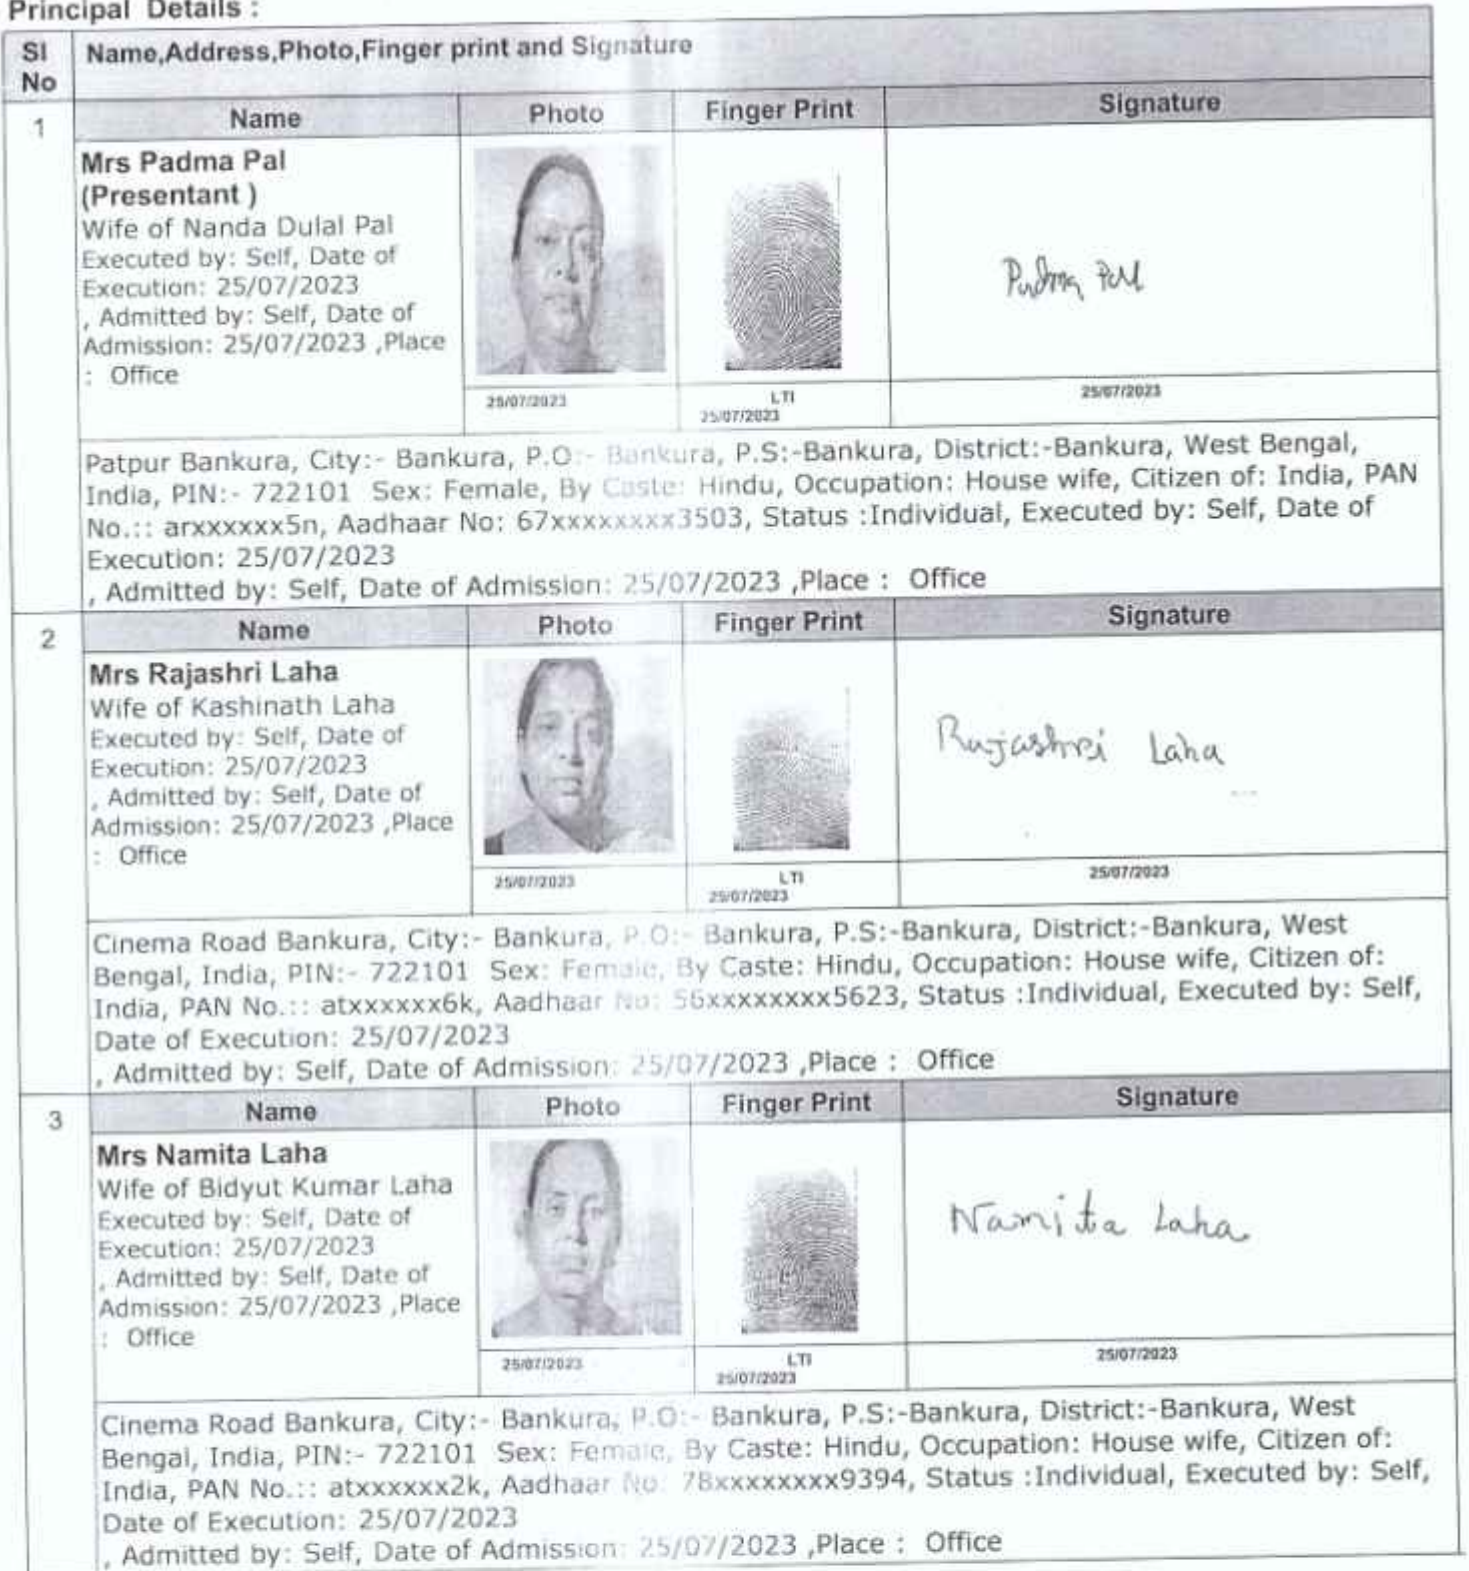 Principal Details :
Sl No
Name,Address,Photo,Finger print and Signature
1
Name Photo Finger Print Signature
Mrs Padma Pal
(Presentant )
Wife of Nanda Dulal Pal
Executed by: Self, Date of
Execution: 25/07/2023
, Admitted by: Self, Date of
Admission: 25/07/2023 ,Place
: Office
Padma Pal
25/07/2023
LTI
25/07/2023
25/07/2023
Patpur Bankura, City:- Bankura, P.O:- Bankura, P.S:-Bankura, District:-Bankura, West Bengal,
India, PIN:- 722101 Sex: Female, By Caste: Hindu, Occupation: House wife, Citizen of: India, PAN
No.:: arxxxxxx5n, Aadhaar No: 67xxxxxxxx3503, Status :Individual, Executed by: Self, Date of
Execution: 25/07/2023
, Admitted by: Self, Date of Admission: 25/07/2023 ,Place : Office
2
Name Photo Finger Print Signature
Mrs Rajashri Laha
Wife of Kashinath Laha
Executed by: Self, Date of
Execution: 25/07/2023
, Admitted by: Self, Date of
Admission: 25/07/2023 ,Place
: Office
Rajashri Laha
25/07/2023
LTI
25/07/2023
25/07/2023
Cinema Road Bankura, City:- Bankura, P.O:- Bankura, P.S:-Bankura, District:-Bankura, West
Bengal, India, PIN:- 722101 Sex: Female, By Caste: Hindu, Occupation: House wife, Citizen of:
India, PAN No.:: atxxxxxx6k, Aadhaar No: 56xxxxxxxx5623, Status :Individual, Executed by: Self,
Date of Execution: 25/07/2023
, Admitted by: Self, Date of Admission: 25/07/2023 ,Place : Office
3
Name Photo Finger Print Signature
Mrs Namita Laha
Wife of Bidyut Kumar Laha
Executed by: Self, Date of
Execution: 25/07/2023
, Admitted by: Self, Date of
Admission: 25/07/2023 ,Place
: Office
Namita Laha
25/07/2023
LTI
25/07/2023
25/07/2023
Cinema Road Bankura, City:- Bankura, P.O:- Bankura, P.S:-Bankura, District:-Bankura, West
Bengal, India, PIN:- 722101 Sex: Female, By Caste: Hindu, Occupation: House wife, Citizen of:
India, PAN No.:: atxxxxxx2k, Aadhaar No: 78xxxxxxxx9394, Status :Individual, Executed by: Self,
Date of Execution: 25/07/2023
, Admitted by: Self, Date of Admission: 25/07/2023 ,Place : Office